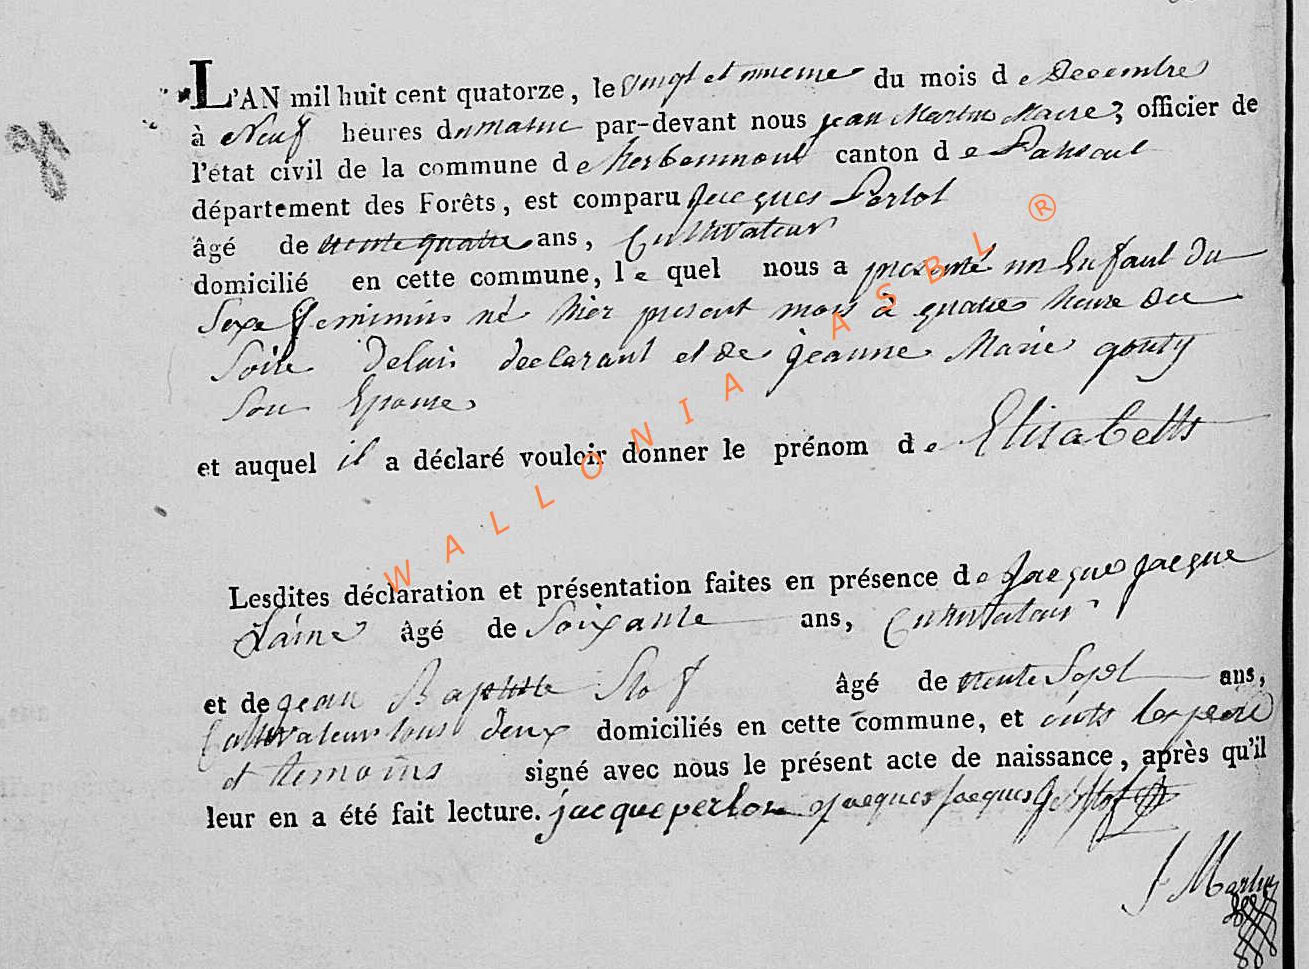 L'AN mil huit cent quatorze, le vingt et unieme du mois de Decembre
à Neuf heures du matin par-devant nous jean Martin Maire, officier de
l'état civil de la commune de herbeumont canton de Paliseul
département des Forêts, est comparu Jacques Perlot
âgé de trente quatre ans, Cultivateur
domicilié en cette commune, le quel nous a presenté un Enfant du
Sexe feminin né hier present mois à quatre heure du
Soire delui declarant et de jeanne Marie gouty
Son Epouse
et auquel il a déclaré vouloir donner le prénom de Elisabeth
Lesdites déclaration et présentation faites en présence de Jacque Jacque
Lainé âgé de Soixante ans, Cultivateur
et de jean Baptiste Slof âgé de trente Sept ans,
Cultivateur tous deux domiciliés en cette commune, et onts les pere
et temoins signé avec nous le présent acte de naissance, après qu'il
leur en a été fait lecture. jacque perlot jacques jacques
J Martin
WALLONIA ASBL ®